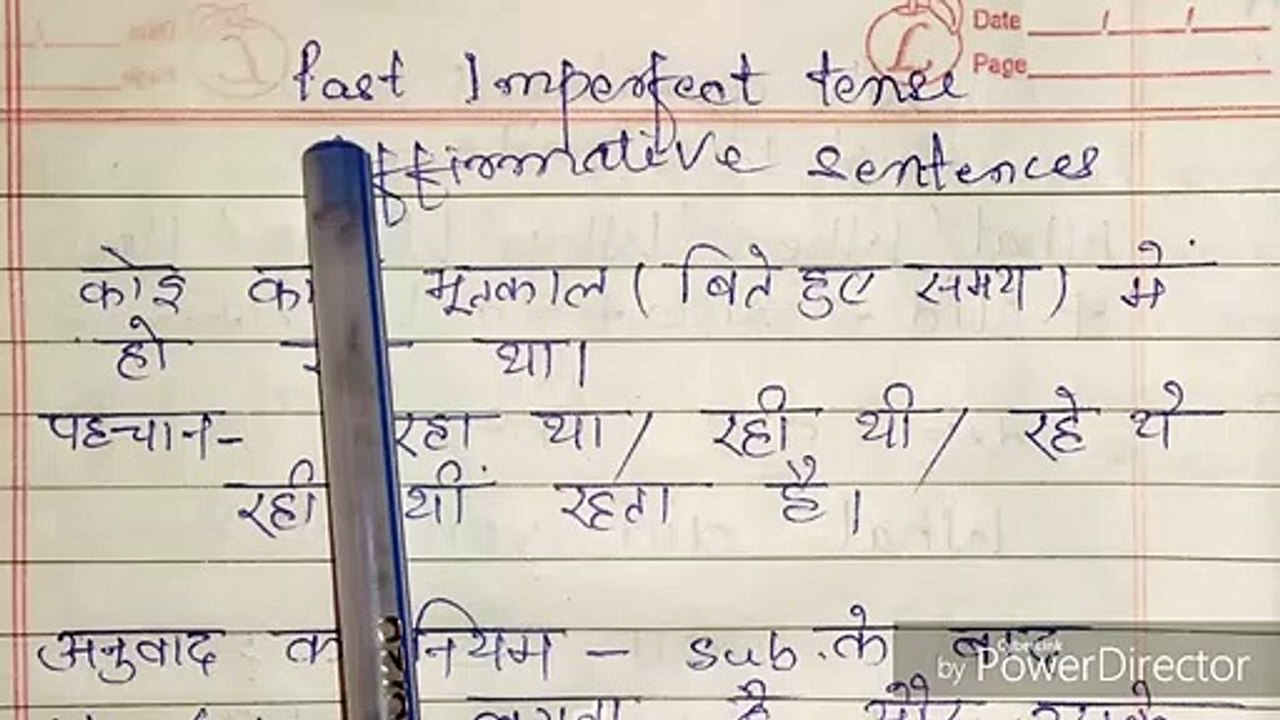 Date
Page
Past Imperfect tense
ffirmative sentences
कोइ भूतकाल ( बिते हुए समय ) में
हो था।
पहचान- रहा था / रही थी / रहे थे
रही थीं रहता है।
अनुवाद नियम - sub. के बाद
by PowerDirector